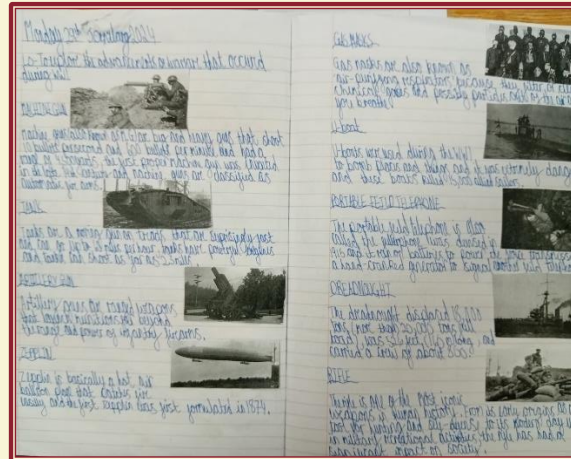 Monday 23rd
LO-To explore the advancements of weaponry that occured
during WW1
MACHINE GUN
machine guns also known as MG are big and heavy guns that shoot
10 bullets per second and 600 bullets per minute and had a
the first proper machine gun was invented
in the late 19th century and machine guns are classified as
automatic
TANK
Tanks are a moving gun on tracks that are surprisingly fast
and can go up to miles per hour. tanks have powerful engines
and tanks can shoot as far as 2.5 miles
ARTILLERY GUN
Artillery guns are ranged weapons
that launch munitions far beyond
the range and power of infantry firearms.
ZEPPELIN
Zeppelin is basically a hot air
balloon plane that catches fire
easily and the first zeppelin was first formulated in 1874.
GAS MASKS
Gas masks are also known as
air-purifying respirators because they filter or clean
chemical gases and possibly particles out of the air as
you breathe
U-boat
U-boats were used during the WW1
to bomb places and things and it was extremely danger
and these boats killed 15,000 allied sailors.
PORTABLE FIELD TELEPHONE
The portable field telephone is also
called the
1915 and it ran on batteries to power the voice transmission
a hand cranked generator to signal another field telephone
DREADNOUGHT
The dreadnought displaced 18,000
tons (more than 20,000 tons full
load), was 526 feet (160 m) long, and
carried a crew of about 800.
RIFLE
The rifle is one of the most iconic
weapons in human history. From its early origins as a
tool for hunting and self-defense to its modern day use
in military recreational activities, the rifle has had a
significant impact on society.